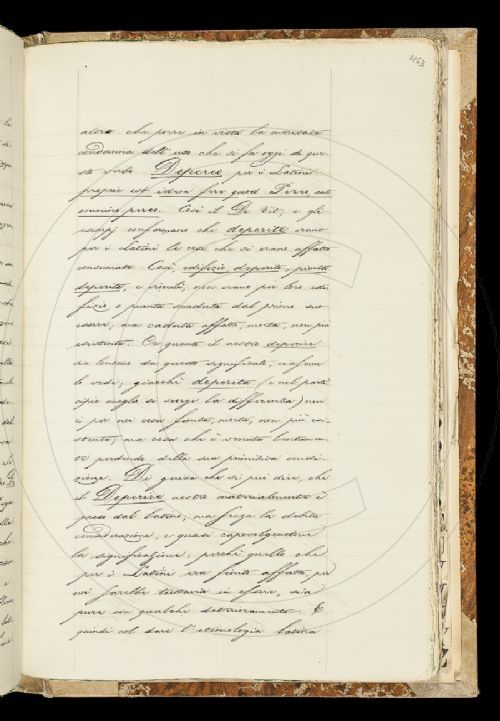 1263
altro che porre in vista la motivata
condanna dell'uso che si fa oggi di que-
sto verbo. Depereo per i Latini
proprie est idem fere quod Pereo, aut
omnino pereo. Così il De Vit; e gli
esempj confermano che deperite erano
per i Latini le cose che si erano affatto
consumate. Così, edifizio deperito, pianta
deperita, e simili, non erano per loro edi-
fizio o pianta scaduta dal primo suo
essere, ma caduta affatto, morta, non più
esistente. Or quanto il nostro deperire
sia lontano da questo significato, ciascun
lo vede; giacchè deperito (e nel parti-
cipio meglio si scorge la differenza) non
è per noi cosa finita, morta, non più esi-
stente; ma cosa che è venuta lentamen-
te perdendo della sua primitiva condi-
zione. Di guisa che si può dire, che
il Deperire nostro materialmente è
preso dal latino; ma senza la debita
considerazione, e quasi capovolgendone
la significazione; perchè quello che
per i Latini era finito affatto, per
noi sarebbe tuttavia in essere, sia
pure con qualche deterioramento. E
quindi col dare l'etimologia latina